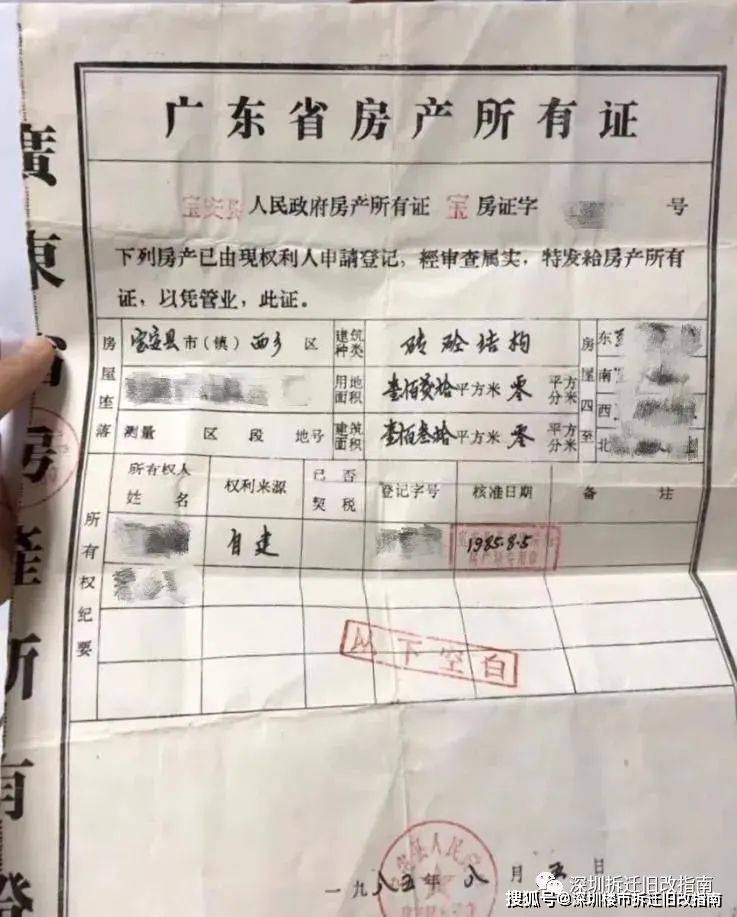 广东省房产所有证
宝安县人民政府房产所有证 宝 房证字 号
下列房产已由现权利人申請登记，經审查属实，特发給房产所有
证，以凭管业，此证。
房屋座落
宝安县市(镇)西乡 区
测量 区 段 地号
建筑种类
砖砼结构
用地面积
壹佰贰拾平方米 零 平方分米
建筑面积
壹佰叁拾平方米 零 平方分米
房屋四至
东
南
西
北
所有权纪要
所有权人姓名
权利来源
已否契税
登记字号
核准日期
备 注
自建
1985.8.5
以下空白
一九八五年八月五日
廣東省房產所有證
深圳拆迁旧改指南
搜狐号@深圳楼市拆迁旧改指南